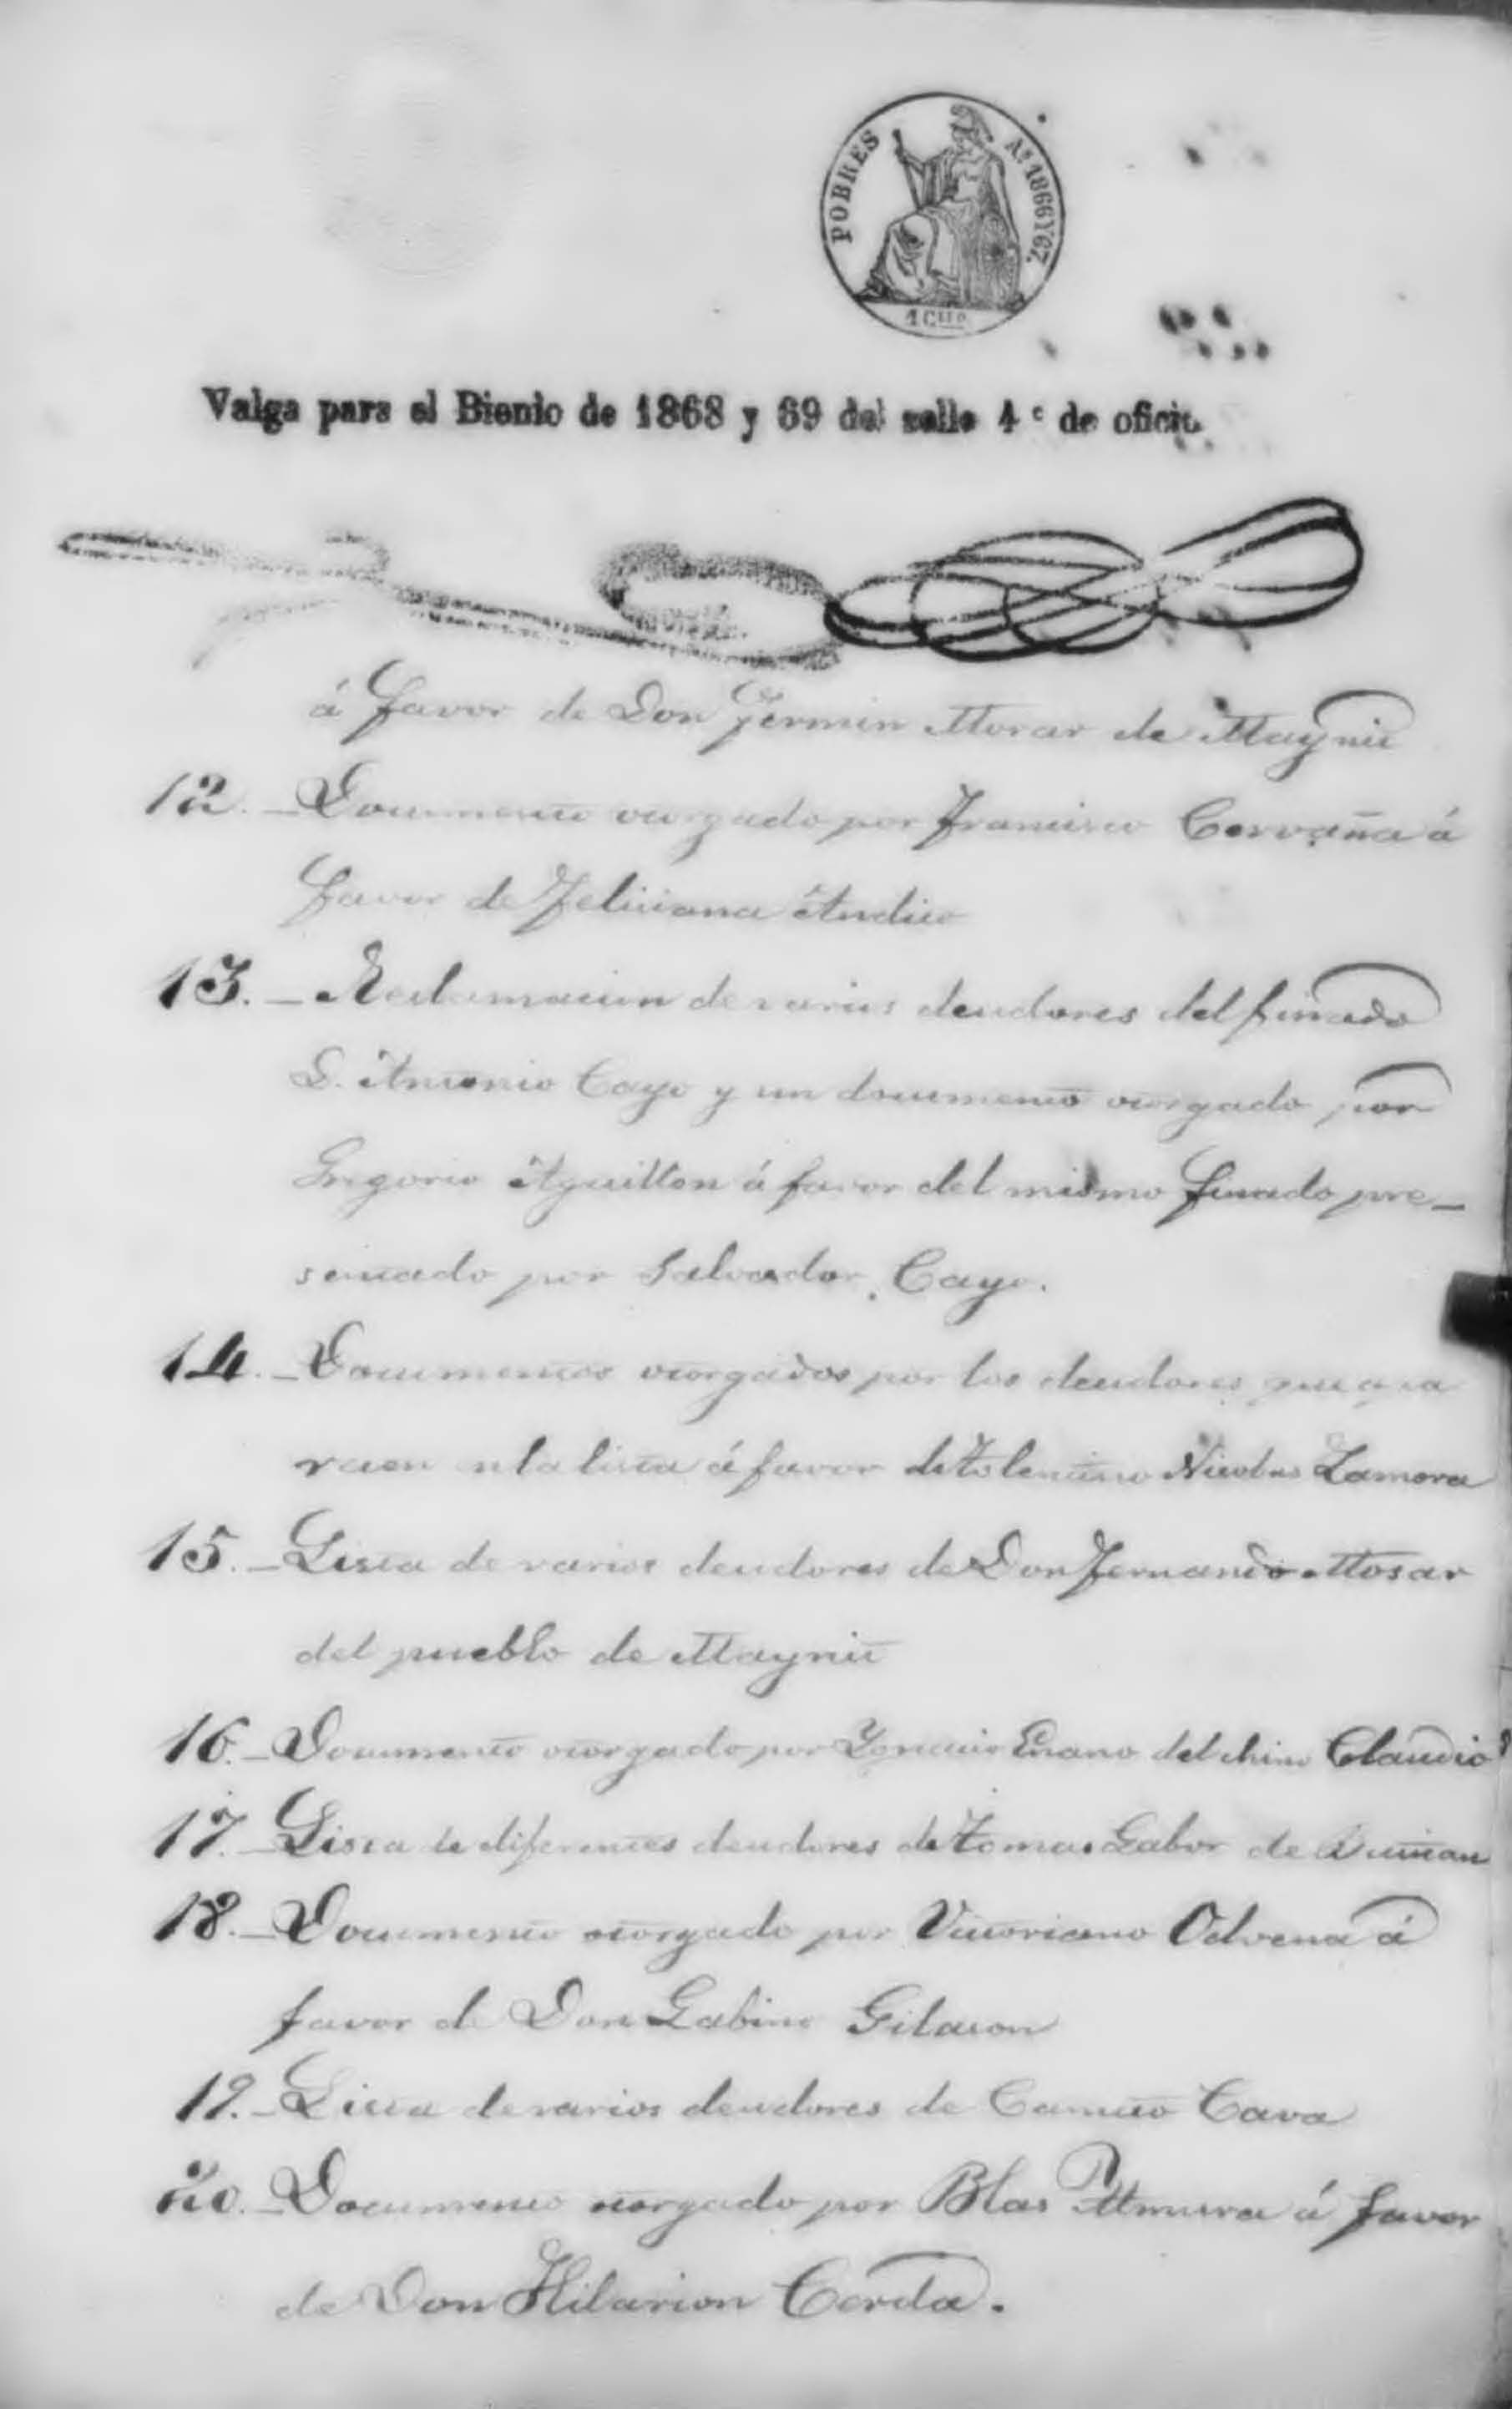 POBRES
Aˢ 1866 Y 67.
1 CUº
Valga para el Bienio de 1868 y 69 del sello 4º de oficio
á favor de Don Fermin Morar de Maynit
12. Documento otorgado por Francisco Corvaña á
favor de Feliciana Andico
13. Reclamacion de varios deudores del finado
D. Antonio Cayo y un documento otorgado por
Gregorio Aguillon á favor del mismo finado pre-
sentado por Salvador Cayo.
14. Documentos otorgados por los deudores que apa
recen en la lista á favor de Tolentino Nicolas Zamora
15. Lista de varios deudores de Don Fernando Mosar
del pueblo de Maynit
16. Documento otorgado por Ignacio del chino Claudio
17. Lista de diferentes deudores de Tomas Gabor de
18. Documento otorgado por Victoriano Odvena á
favor de Don Gabino Gilacon
19. Lista de varios deudores de Cava
20. Documento otorgado por Blas á favor
de Don Hilarion Cerda.